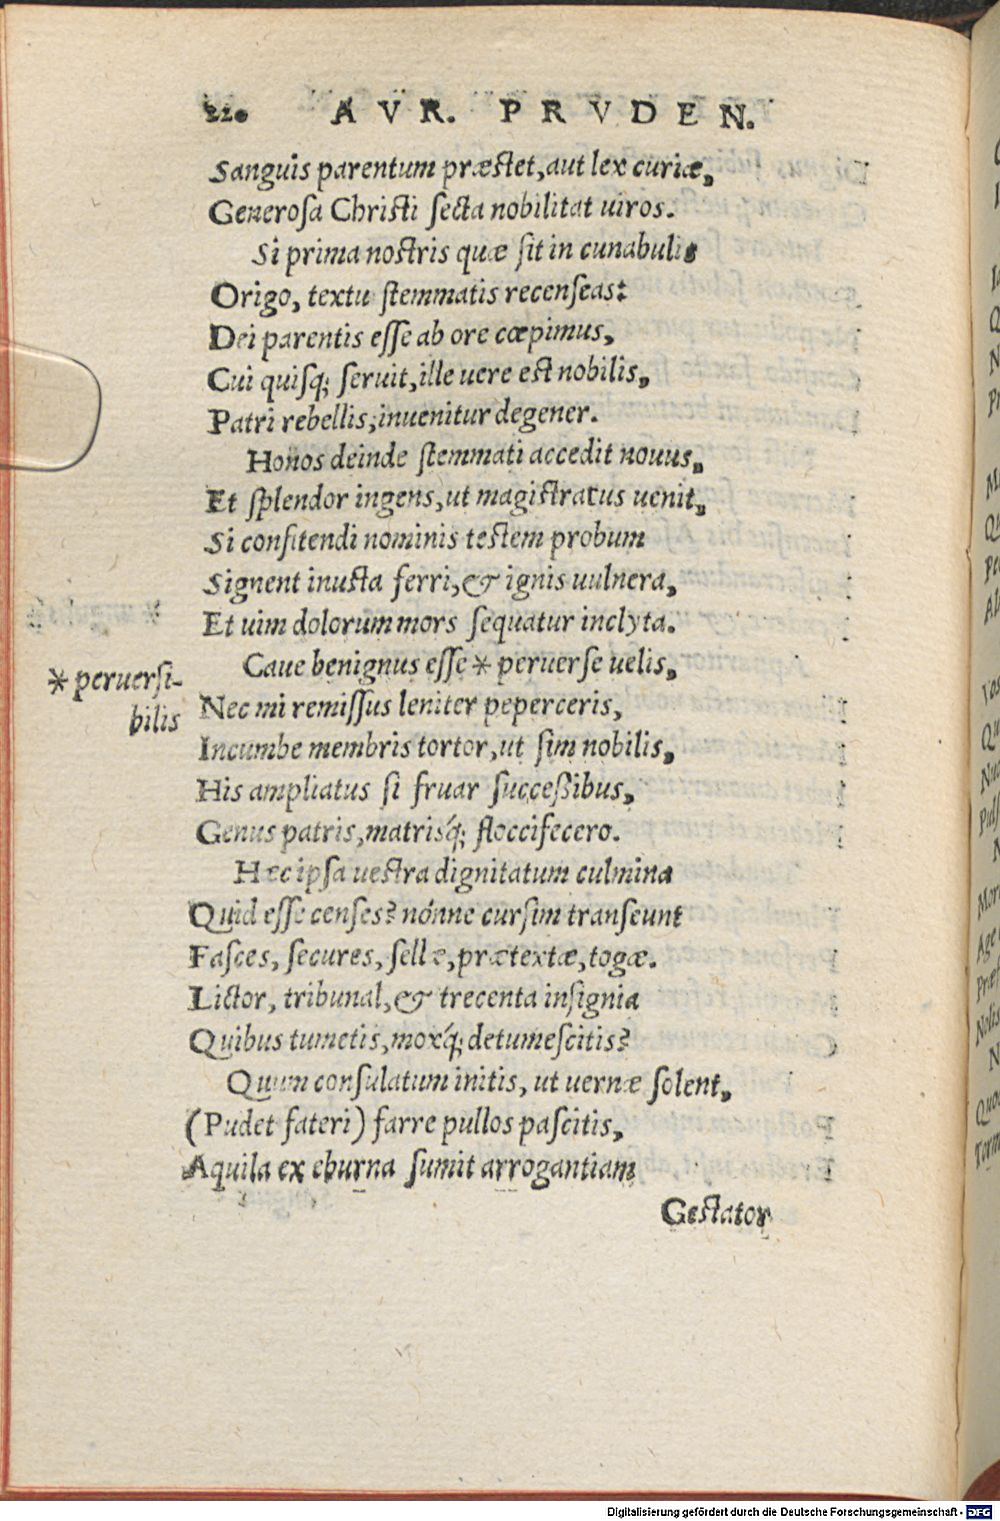 220 AVR. PRVDEN.
Sanguis parentum præstet, aut lex curiæ,
Generosa Christi secta nobilitat uiros.
Si prima nostris quæ sit in cunabulis
Origo, textu stemmatis recenseas:
Dei parentis esse ab ore cœpimus,
Cui quisq; seruit, ille uere est nobilis,
Patri rebellis, inuenitur degener.
Honos deinde stemmati accedit nouus,
Et splendor ingens, ut magistratus uenit,
Si confitendi nominis testem probum
Signent inusta ferri, & ignis uulnera,
Et uim dolorum mors sequatur inclyta.
Caue benignus esse * peruerse uelis,
* peruersi-
bilis
Nec mi remissus leniter peperceris,
Incumbe membris tortor, ut sim nobilis,
His ampliatus si fruar succeßibus,
Genus patris, matrisq́; floccifecero.
Hæc ipsa uestra dignitatum culmina
Quid esse censes? nónne cursim transeunt
Fasces, secures, sellæ, prætextæ, togæ.
Lictor, tribunal, & trecenta insignia
Quibus tumetis, moxq́; detumescitis?
Quum consulatum initis, ut uernæ solent,
(Pudet fateri) farre pullos pascitis,
Aquila ex eburna sumit arrogantiam
Gestator
Digitalisierung gefördert durch die Deutsche Forschungsgemeinschaft - DFG